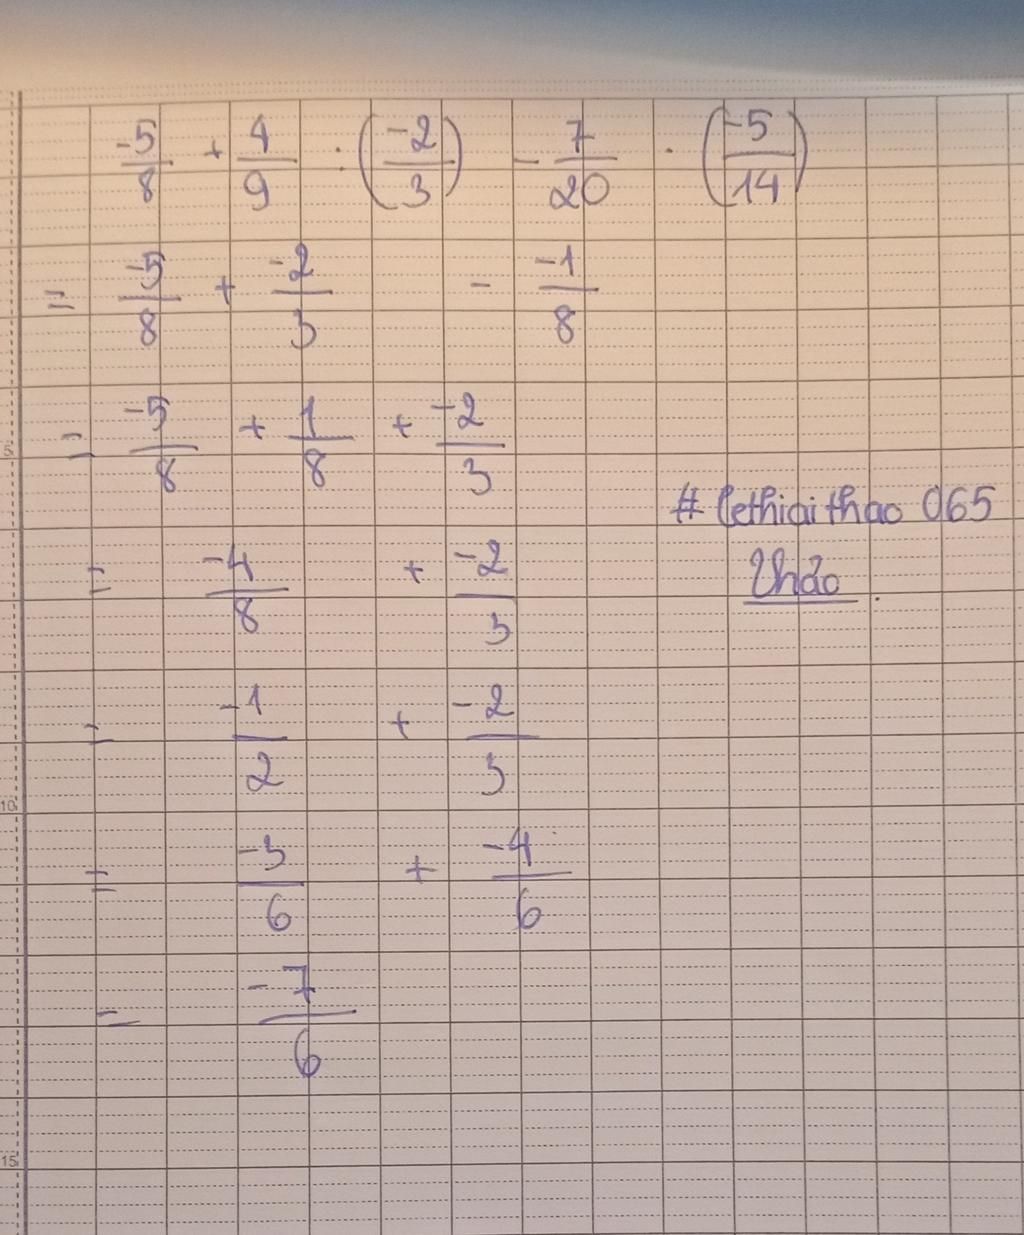 -5/8 + 4/9 : (-2/3) - 7/20 . (-5/14)
= -5/8 + -2/3 - -1/8
= -5/8 + 1/8 + -2/3
= -4/8 + -2/3
= -1/2 + -2/3
= -3/6 + -4/6
= -7/6
# lethiaithao 065
Thảo.
5
10
15